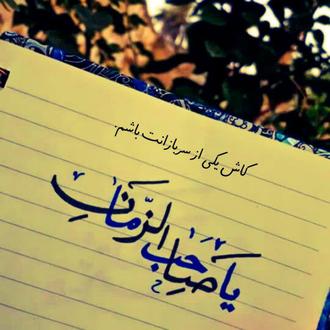 کاش یکی از سربازانت باشم.
یا صاحب الزّمانِ